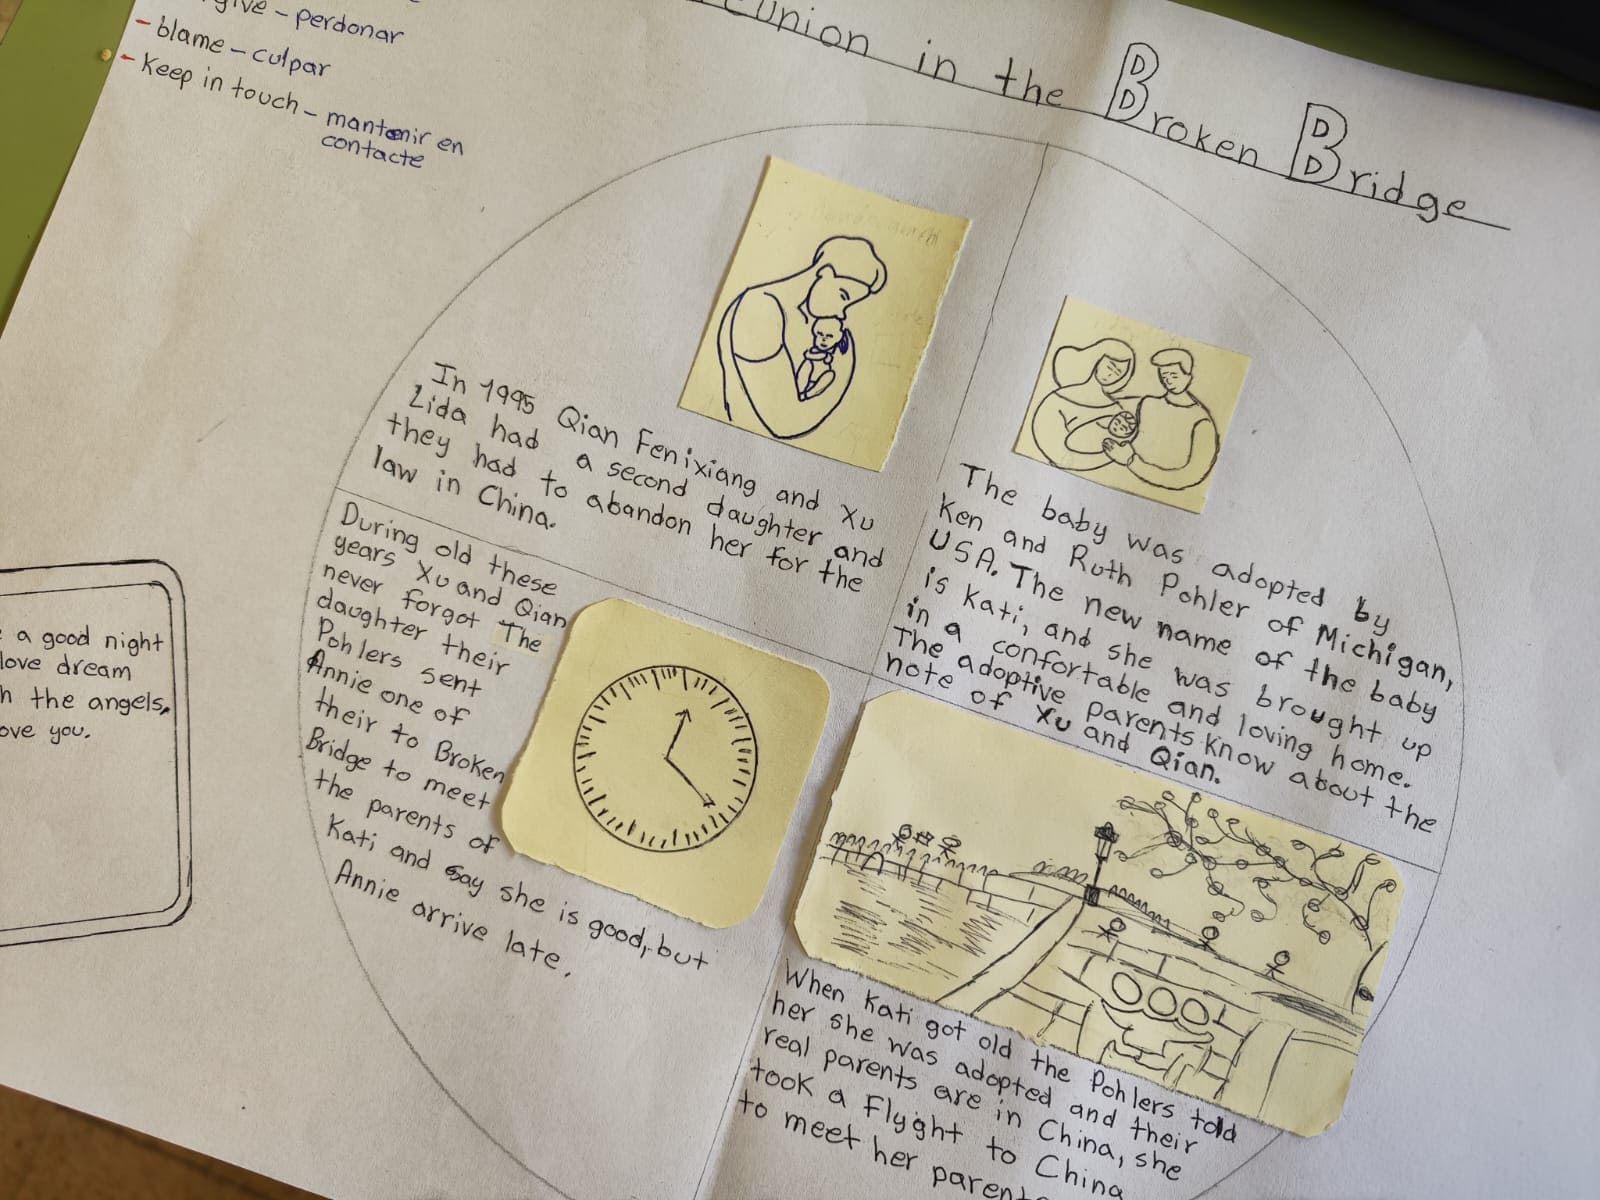 give - perdonar
- blame - culpar
- Keep in touch - mantenir en
contacte
in the Broken Bridge
In 1995 Qian Fenixiang and Xu
Lida had a second daughter and
they had to abandon her for the
law in China.
The baby was adopted by
Ken and Ruth Pohler of Michigan,
USA. The new name of the baby
is Kati, and she was brought up
in a confortable and loving home.
The adoptive parents Know about the
note of Xu and Qian.
During old these
years Xu and Qian
never forgot The
daughter their
Pohlers sent
Annie one of
their to Broken
Bridge to meet
the parents of
Kati and say she is good, but
Annie arrive late.
When Kati got old the Pohlers told
her she was adopted and their
real parents are in China, she
took a Flyght to China
to meet her
a good night
love dream
the angels,
you.